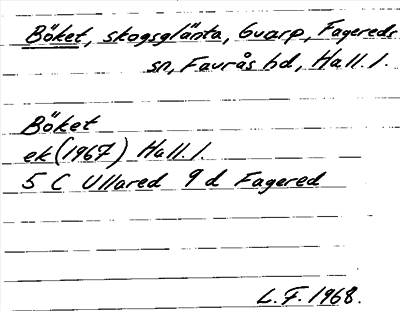 Böket, skogsglänta, Gvarp, Fagereds
sn, Faurås hd, Hall. l.
Böket
ek (1967) Hall. l.
5 C Ullared 9 d Fagered
L. F. 1968.